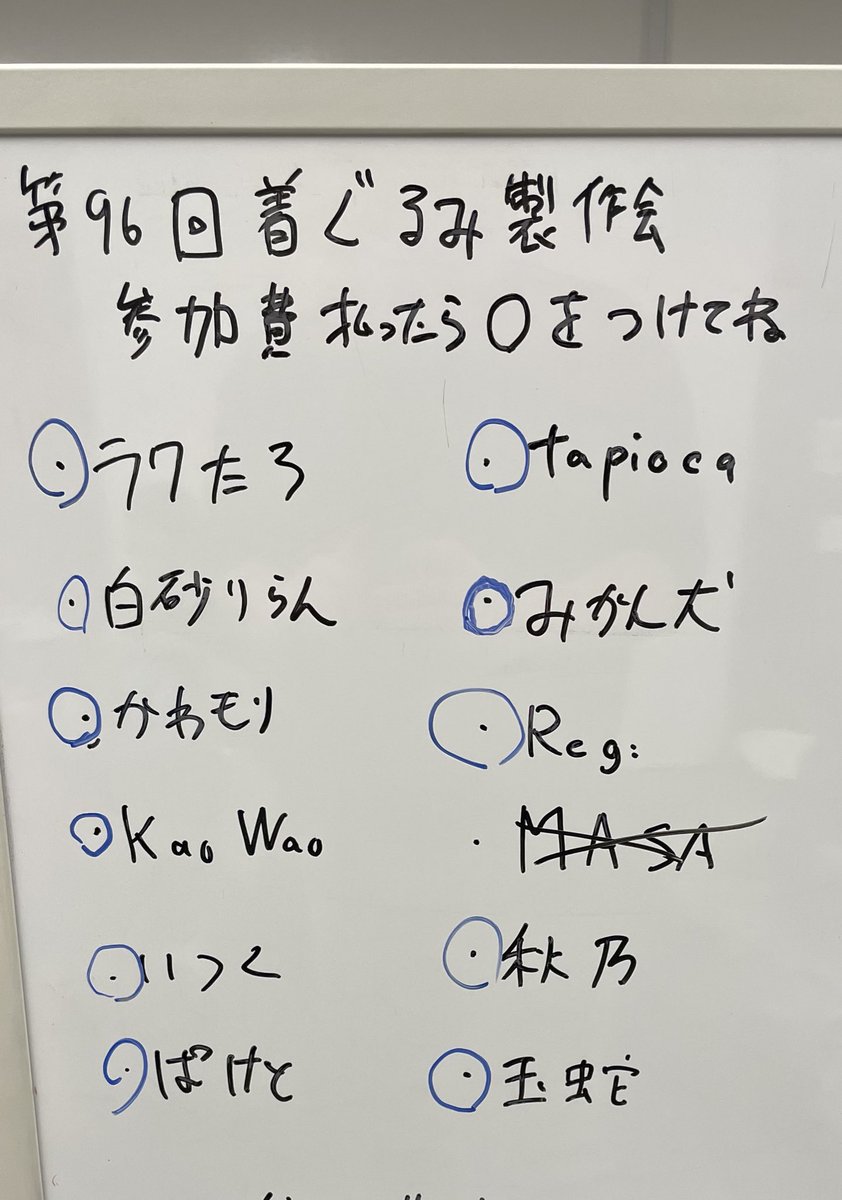 第96回着ぐるみ製作会
参加費払ったら○をつけてね
・ラクたろ
・白砂りらん
・かわモリ
・Kao Wao
・いつく
・ぱけと
・tapioca
・みかん犬
・Reg:
・MASA
・秋乃
・玉蛇